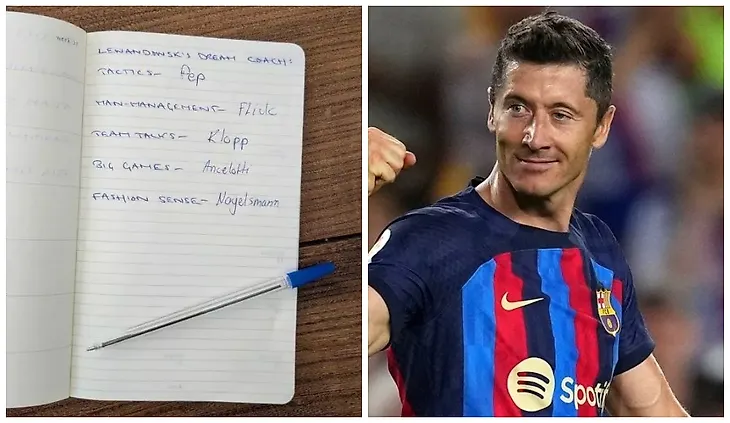 LEWANDOWSK'S DREAM COACH:
TACTICS- Pep
MAN-MANAGEMENT- Flick
TEAM TALKS- Klopp
BIG GAMES- Ancelotti
FASHION SENSE- Nagelsmann
Spotify